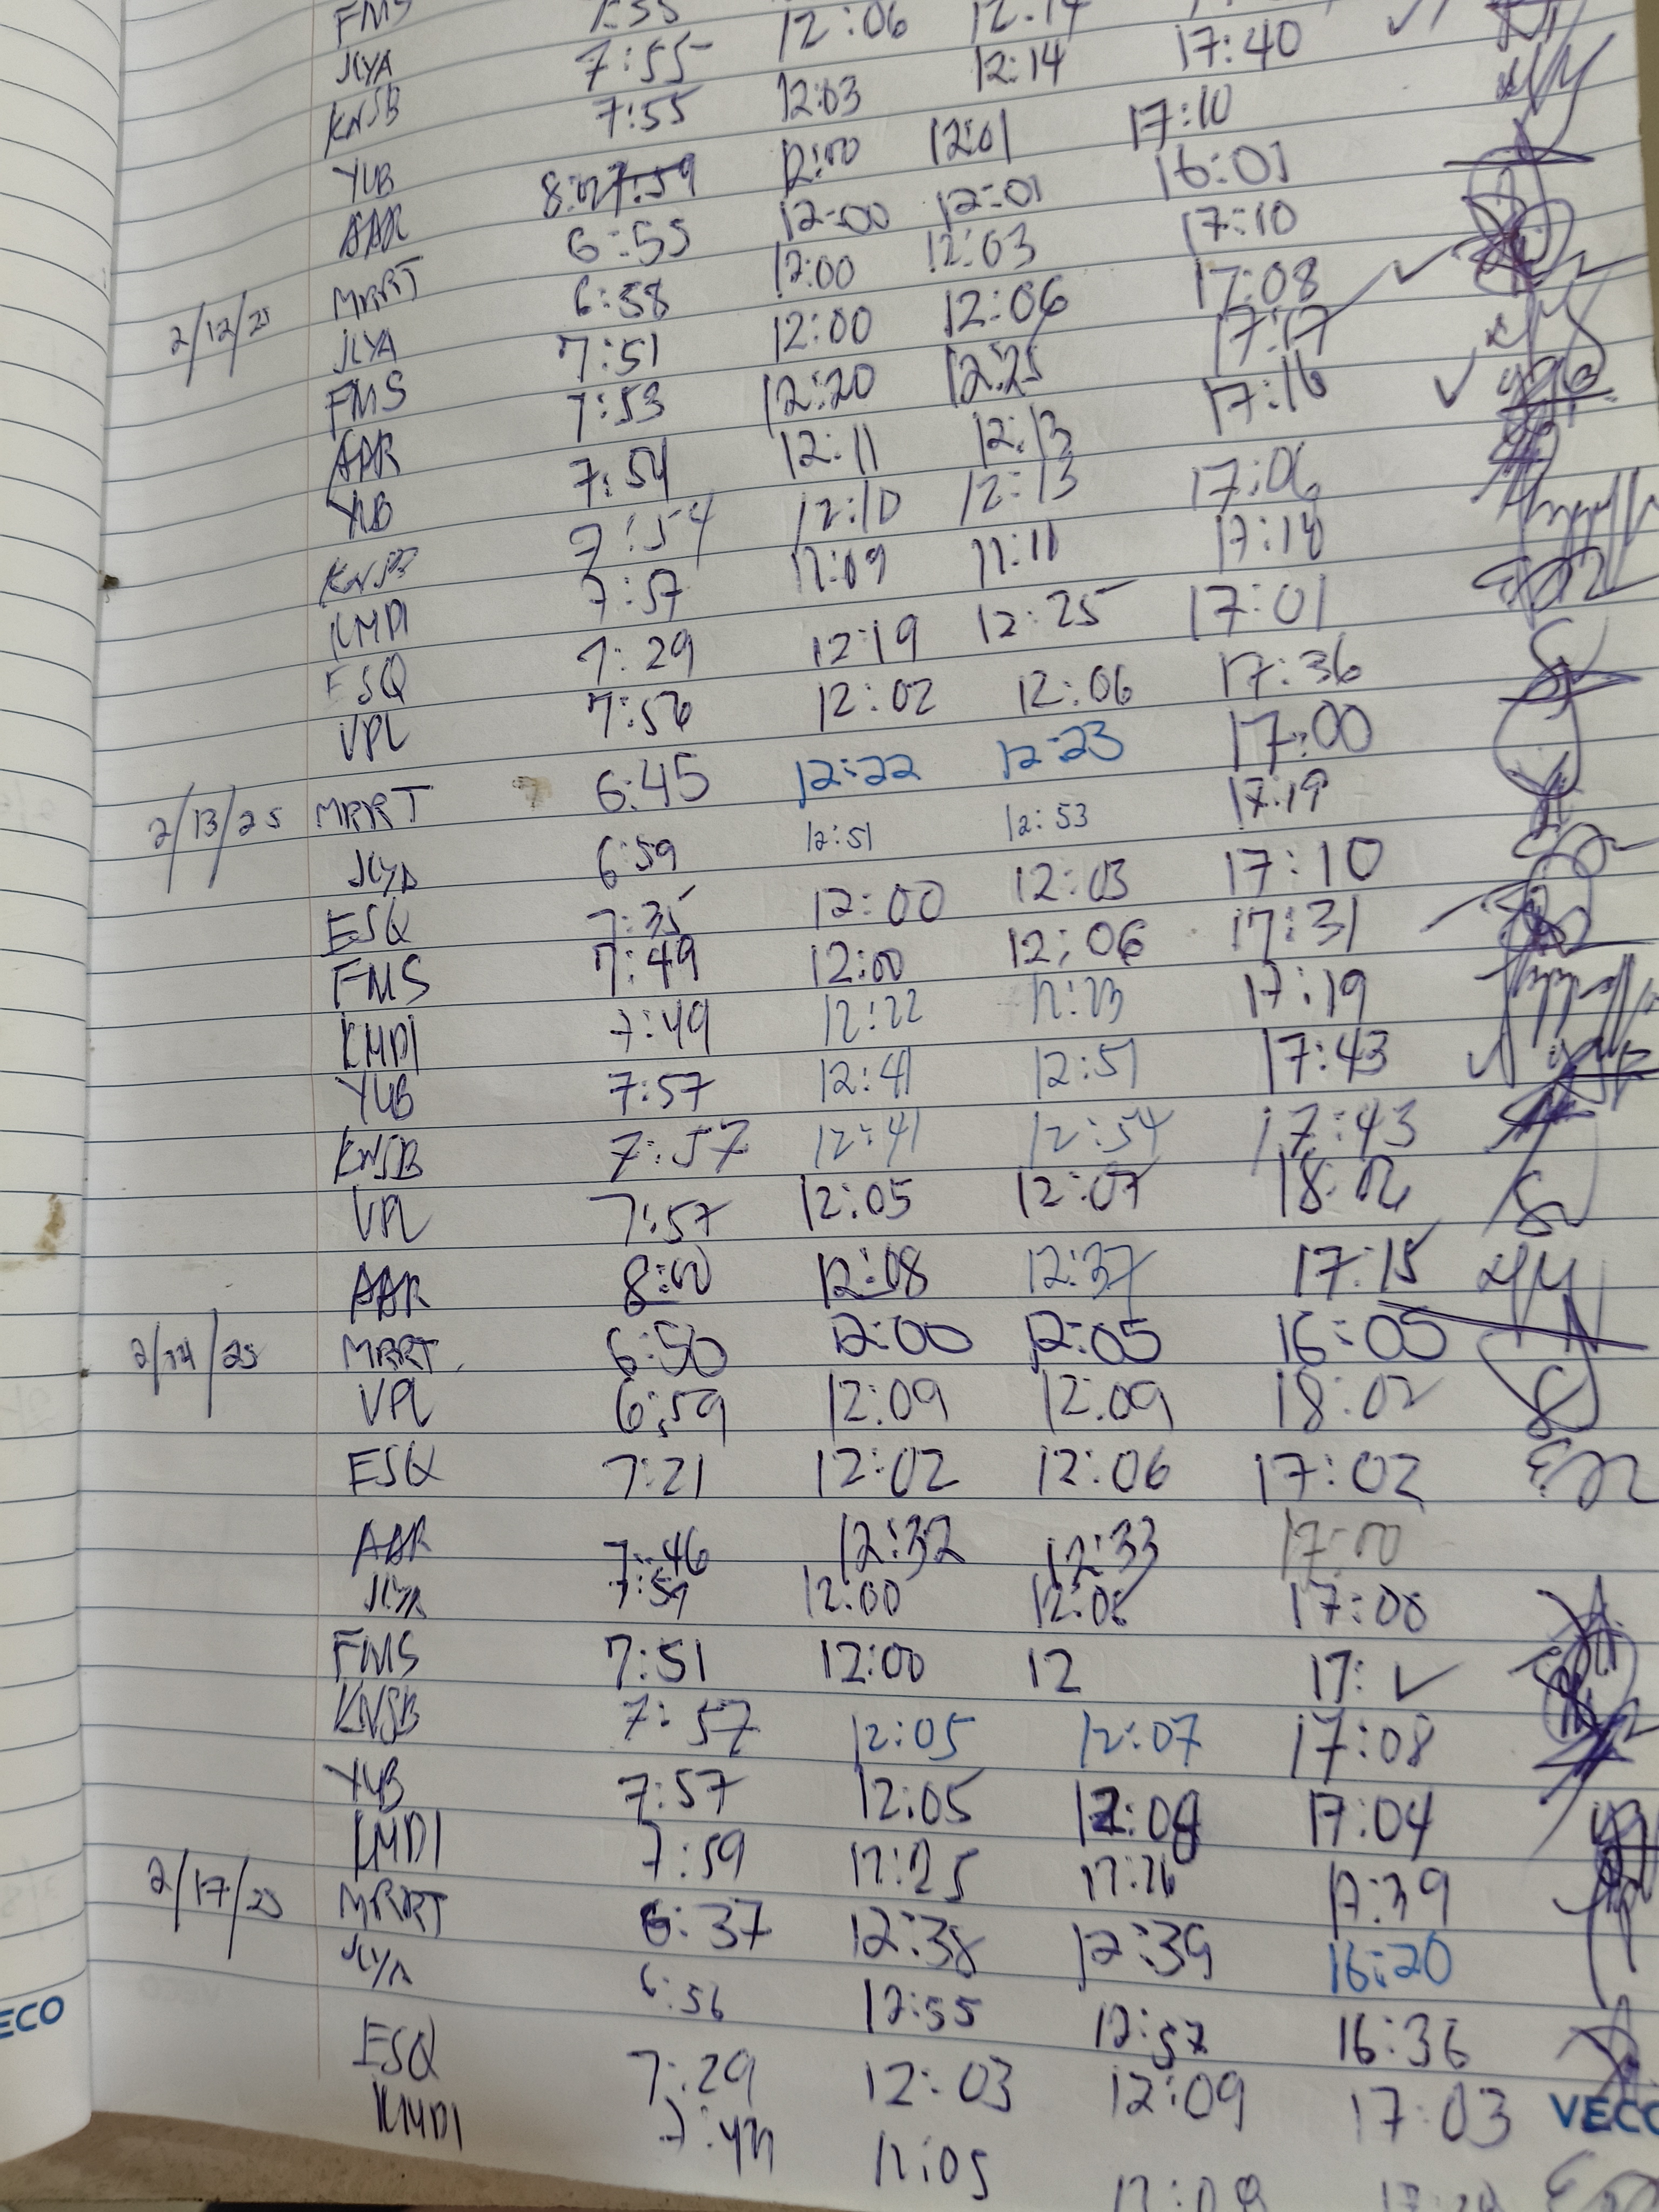 FMS 7:55 12:06 12:14
JLYA 7:55 12:03 12:14 17:40
KNSB 7:55 12:00 12:01 17:10
YLB 8:02 7:59 12:00 12:01 16:01
AAR 6:55 12:00 12:03 17:10
2/12/25 MRRT 6:58 12:00 12:06 17:08
JLYA 7:51 12:20 12:25 17:17
FMS 7:53 12:11 12:13 17:16
AAR 7:54 12:10 12:13 17:06
YLB 7:54 12:09 12:11 17:14
KNSB 7:57 12:19 12:25 17:01
KMDI 7:29 12:02 12:06 17:36
ESQ 7:56
VPL
2/13/25 MRRT 6:45 12:22 12:23 17:00
JLYA 6:59 12:51 12:53 17:19
ESQ 7:35 12:00 12:03 17:10
FMS 7:49 12:00 12:06 17:31
KMDI 7:49 12:22 12:23 17:19
YLB 7:57 12:41 12:51 17:43
KNSB 7:57 12:41 12:54 17:43
VPL 7:57 12:05 12:07 18:02
AAR 8:00 12:08 12:37 17:15
2/14/25 MRRT 6:50 12:00 12:05 16:05
VPL 6:59 12:09 12:09 18:02
ESQ 7:21 12:02 12:06 17:02
AAR 7:46 12:32 12:33 17:00
JLYA 7:59 12:00 17:00
FMS 7:51 12:00 12 17:
KNSB 7:57 12:05 12:07 17:08
YLB 7:57 12:05 12:08 17:04
KMDI 7:59 12:25 12:26 17:39
2/17/25 MRRT 6:37 12:38 12:39 16:20
JLYA 6:56 12:55 12:57 16:36
ESQ 7:29 12:03 12:09 17:03
KMDI 12:05 12:09
ECO
VECO